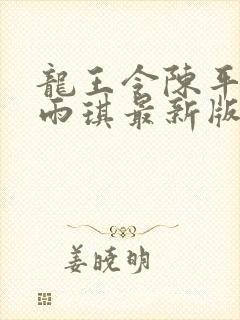 龍王令陳平
雨琪最新版
姜曉明